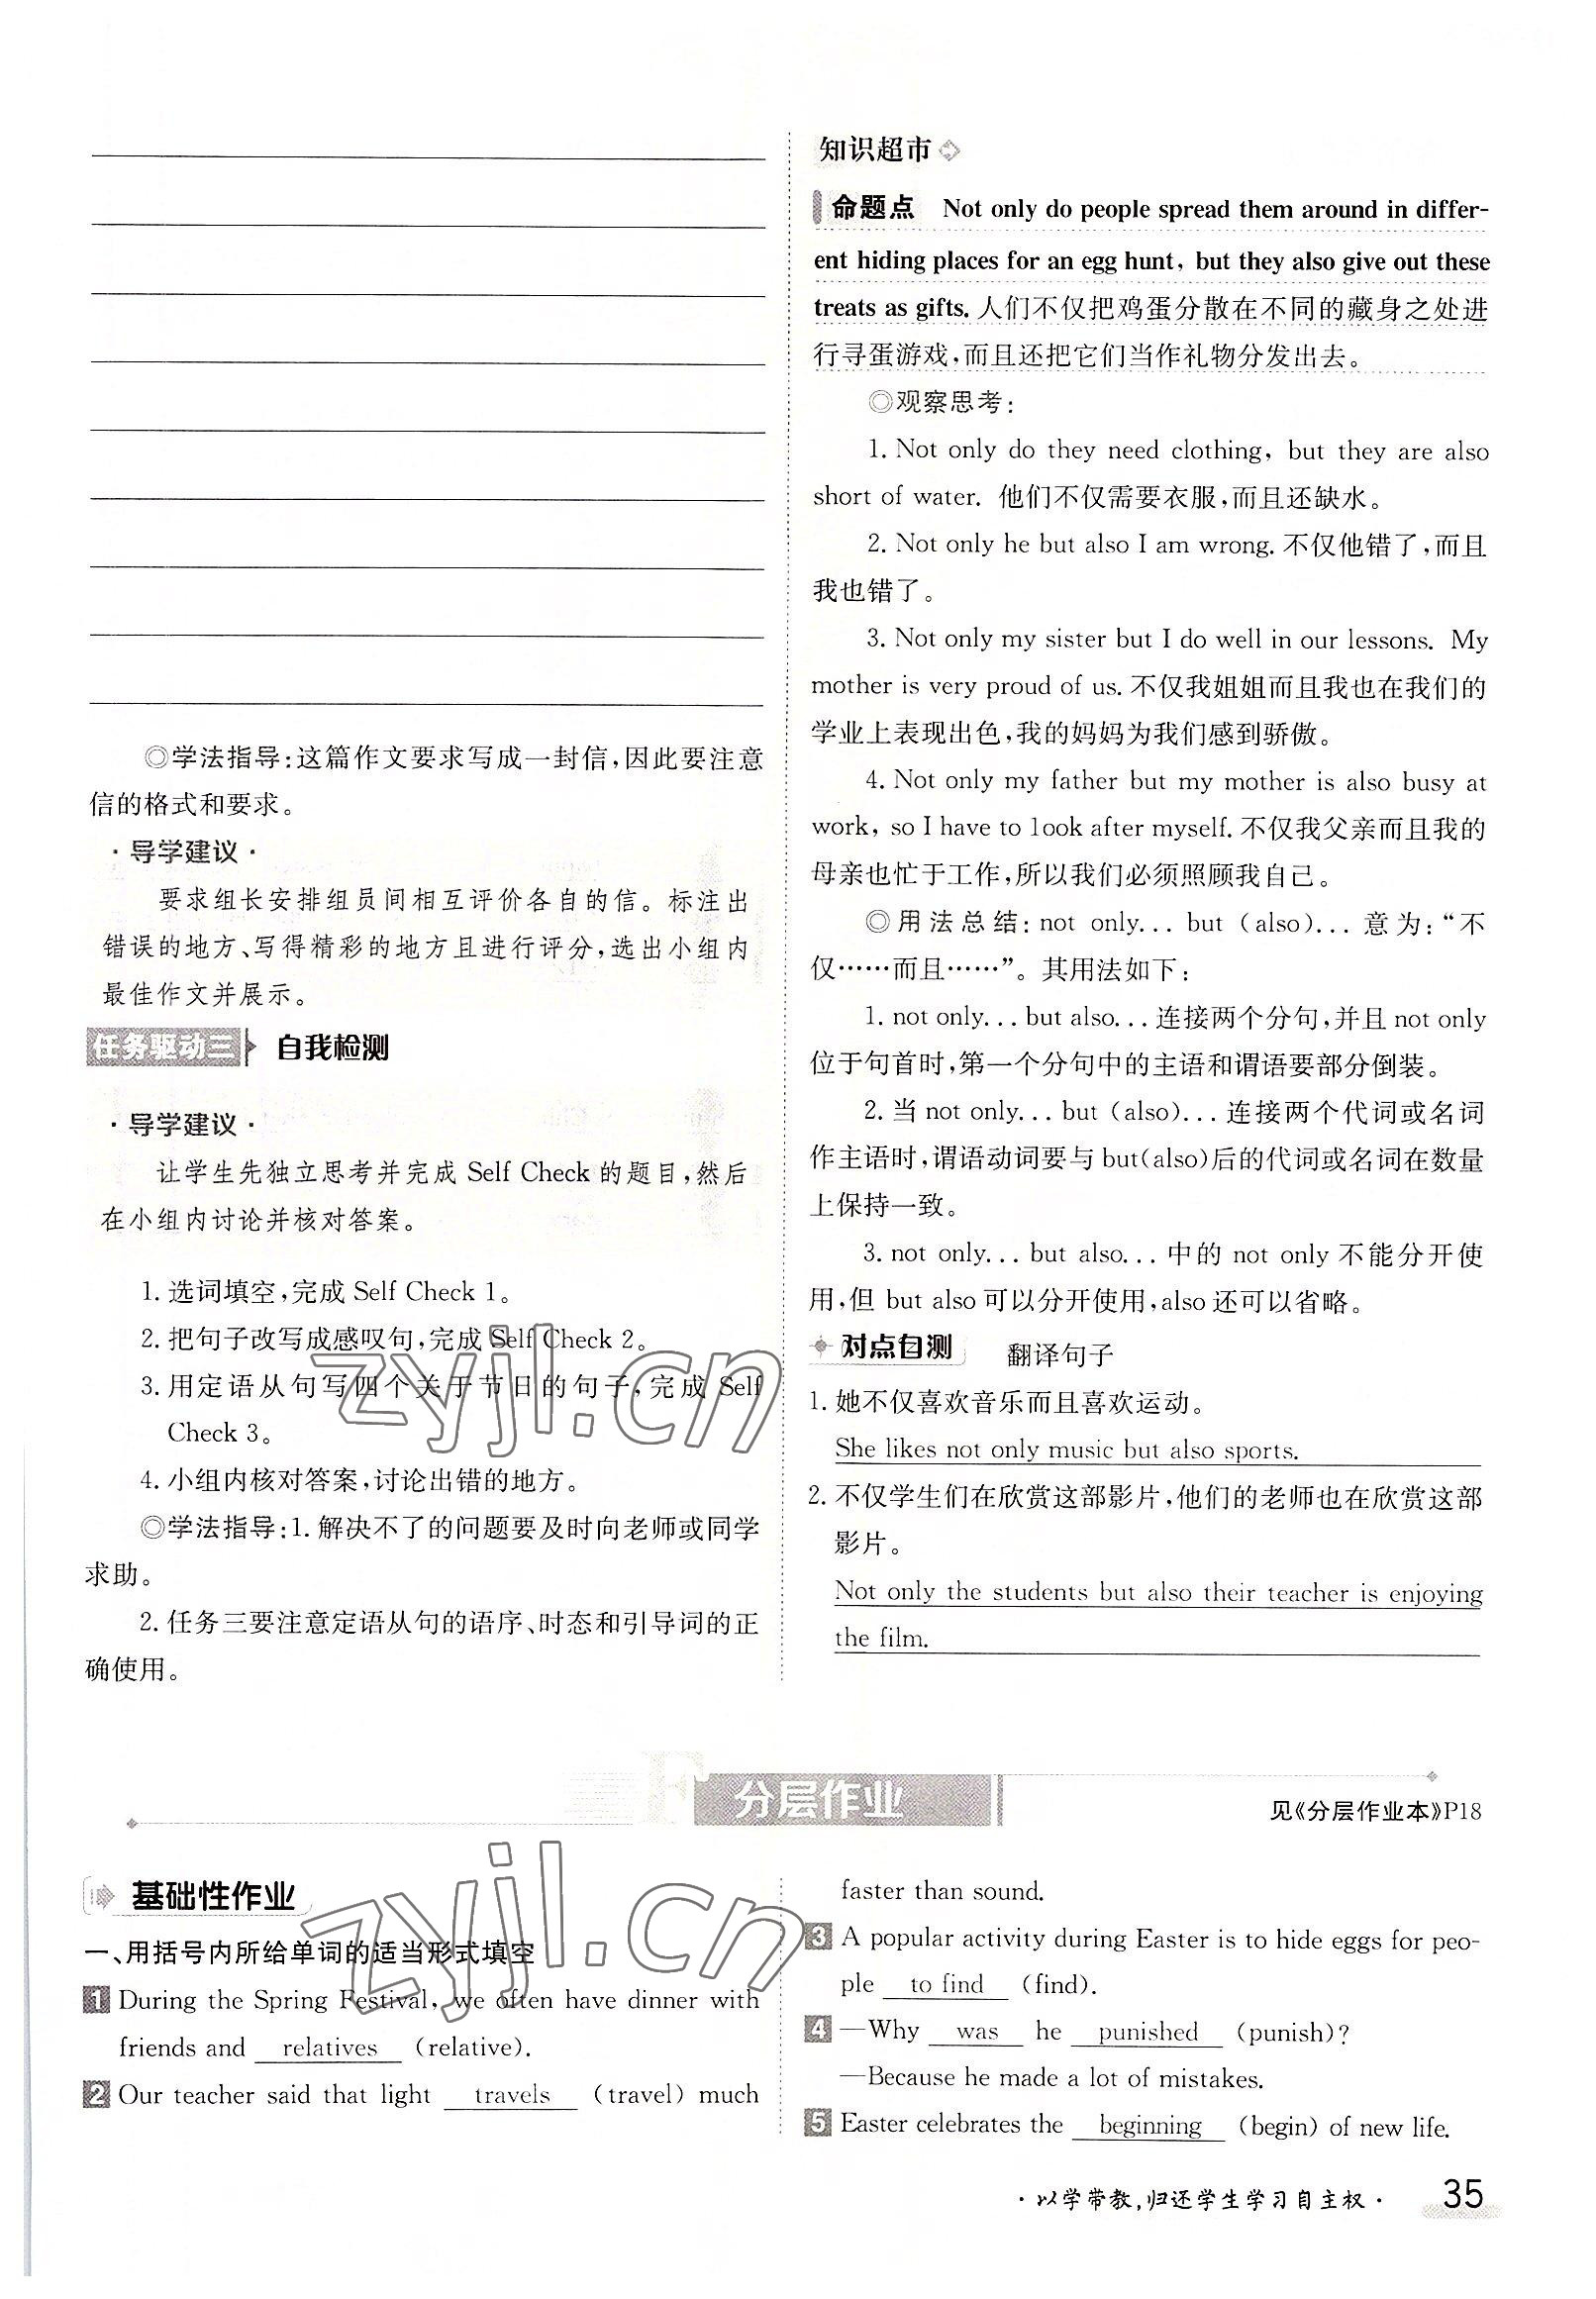 ◎学法指导:这篇作文要求写成一封信,因此要注意
信的格式和要求。
·导学建议·
要求组长安排组员间相互评价各自的信。标注出
错误的地方、写得精彩的地方且进行评分,选出小组内
最佳作文并展示。
任务驱动三 自我检测
·导学建议·
让学生先独立思考并完成 Self Check 的题目,然后
在小组内讨论并核对答案。
1. 选词填空,完成 Self Check 1。
2. 把句子改写成感叹句,完成 Self Check 2。
3. 用定语从句写四个关于节日的句子,完成 Self
Check 3。
4. 小组内核对答案,讨论出错的地方。
◎学法指导:1. 解决不了的问题要及时向老师或同学
求助。
2. 任务三要注意定语从句的语序、时态和引导词的正
确使用。
知识超市
命题点 Not only do people spread them around in differ-
ent hiding places for an egg hunt, but they also give out these
treats as gifts. 人们不仅把鸡蛋分散在不同的藏身之处进
行寻蛋游戏,而且还把它们当作礼物分发出去。
◎观察思考:
1. Not only do they need clothing, but they are also
short of water. 他们不仅需要衣服,而且还缺水。
2. Not only he but also I am wrong. 不仅他错了,而且
我也错了。
3. Not only my sister but I do well in our lessons. My
mother is very proud of us. 不仅我姐姐而且我也在我们的
学业上表现出色,我的妈妈为我们感到骄傲。
4. Not only my father but my mother is also busy at
work, so I have to look after myself. 不仅我父亲而且我的
母亲也忙于工作,所以我们必须照顾我自己。
◎用法总结:not only... but (also)... 意为:“不
仅……而且……”。其用法如下:
1. not only... but also... 连接两个分句,并且 not only
位于句首时,第一个分句中的主语和谓语要部分倒装。
2. 当 not only... but (also)... 连接两个代词或名词
作主语时,谓语动词要与 but(also)后的代词或名词在数量
上保持一致。
3. not only... but also... 中的 not only 不能分开使
用,但 but also 可以分开使用,also 还可以省略。
对点自测 翻译句子
1. 她不仅喜欢音乐而且喜欢运动。
She likes not only music but also sports.
2. 不仅学生们在欣赏这部影片,他们的老师也在欣赏这部
影片。
Not only the students but also their teacher is enjoying
the film.
zyjl.cn
F 分层作业
见《分层作业本》P18
基础性作业
一、用括号内所给单词的适当形式填空
1 During the Spring Festival, we often have dinner with
friends and relatives (relative).
2 Our teacher said that light travels (travel) much
faster than sound.
3 A popular activity during Easter is to hide eggs for peo-
ple to find (find).
4 —Why was he punished (punish)?
—Because he made a lot of mistakes.
5 Easter celebrates the beginning (begin) of new life.
zyjl.cn
·以学带教,归还学生学习自主权· 35